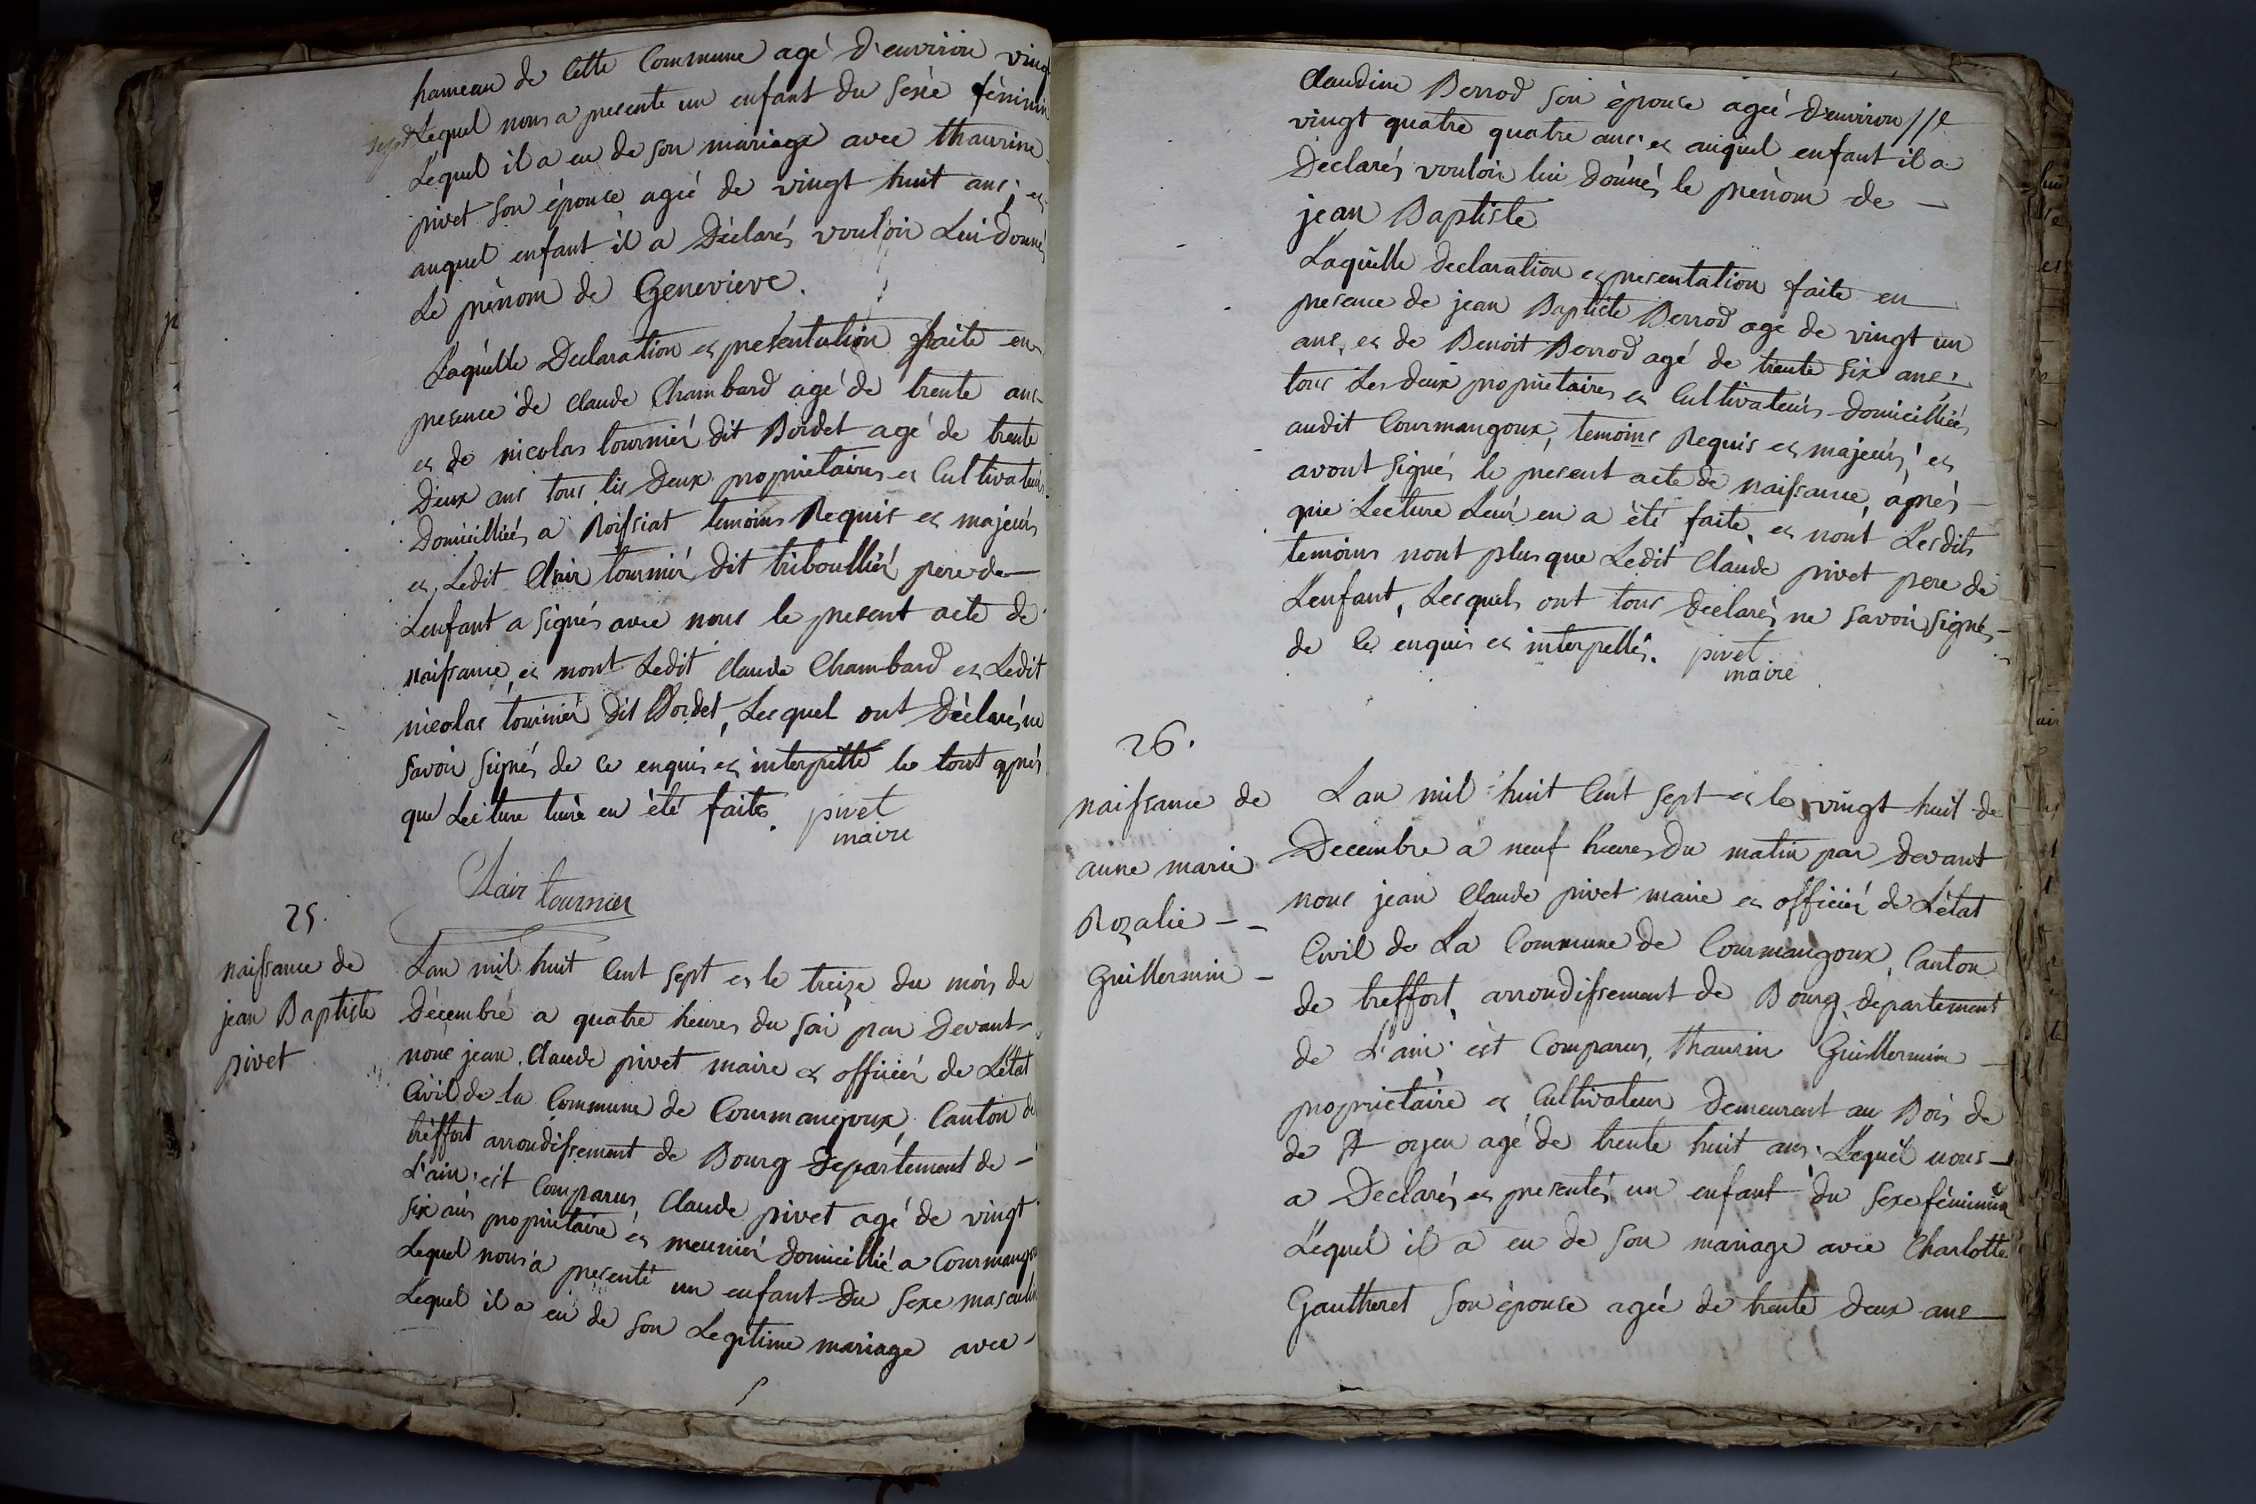 hameau de Cette Commune agé d'environ vingt
sept Lequel nous a presente un enfant du sexe féminin
Lequel il a eu de son mariage avec thaurine
pivet son épouse agée de vingt huit ans, et
auquel enfant il a Déclarés vouloir Lui donnés
Le prénom de Genevieve.
Laquelle Declaration et presentation faite en
presence de claude Chambard agé de trente ans
et de nicolas tournier dit Bordet agé de trente
Deux ans tous les Deux proprietaires et Cultivateurs
Domicilliés a Roissiat temoins Requis et majeurs
et Ledit Clair tournier dit triboullier pere de
Lenfant a signés avec nous le present acte de
naissance, et nont Ledit Claude Chambard et Ledit
nicolas tournier Dit Bordet, Lesquel ont Déclarés ne
savoir signés de ce enquis et interpellé le tout après
que Lecture luire en été faite. pivet
maire
Clair tournier
25.
naissance de
jean Baptiste
pivet
Lan mil huit Cent sept et le treize du mois de
Décembre a quatre heures du soir par Devant
nous jean Claude pivet maire et officier de Létat
Civil de la Commune de Courmangoux, Canton de
treffort arrondissement de Bourg département de
L'ain, est Comparus, Claude pivet agé de vingt
six ans proprietaire et meunier domicillié a Courmangoux
Lequel nous a presenté un enfant du sexe masculin
Lequel il a eu de son Legitime mariage avec
Claudine Berrod son épouse agée d'environ
vingt quatre quatre ans, et auquel enfant il a
Déclarés vouloir lui donnés le prénom de
jean Baptiste
Laquelle declaration et presentation faite en
presence de jean Baptiste Berrod age de vingt un
ans, et de Benoit Berrod agé de trente six ans,
tous Les deux proprietaires et Cultivateurs domicilliés
audit Courmangoux, temoins Requis et majeurs, et
avont signés le present acte de naissance, après
que Lecture Leur en a été faite, et nont Lesdits
temoins nont plus que Ledit Claude pivet pere de
Lenfant, Lesquels ont tous declarés ne savoir signés
de ce enquis et interpellés. pivet
maire
26.
naissance de
anne marie
Rozalie
Guillermin
Lan mil huit Cent sept et le vingt huit de
Decembre a neuf heures Du matin par devant
nous jean Claude pivet maire et officier de Létat
Civil de La Commune de Courmangoux, Canton
de treffort, arrondissement de Bourg, departement
de L'ain est Comparus, thaurin Guillermin
proprietaire et Cultivateur Demeurant au Bois de
de St oyen agé de trente huit ans, Lequel nous
a Declarés et presentés un enfant du sexe féminin
Lequel il a eu de son mariage avec Charlotte
Gautheret son épouse agée de trente deux ans